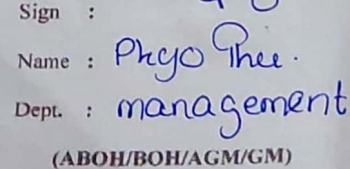 Sign :
Name : Phyo Thu.
Dept. : management
(ABOH/BOH/AGM/GM)